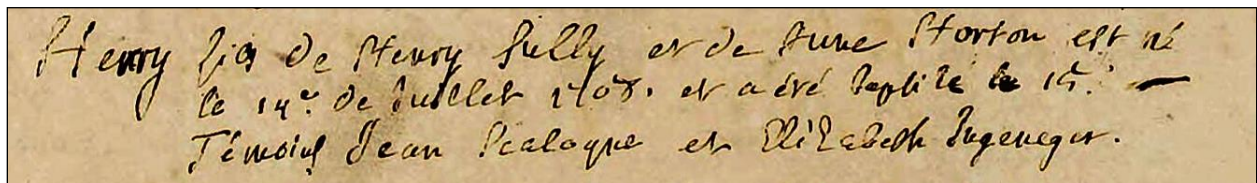 Henry fis de Henry Sully et de Anne Horton est né
le 14e de Juillet 1708. et a été baptisé le 15.
Témoins Jean Scalogne et Elizabeth